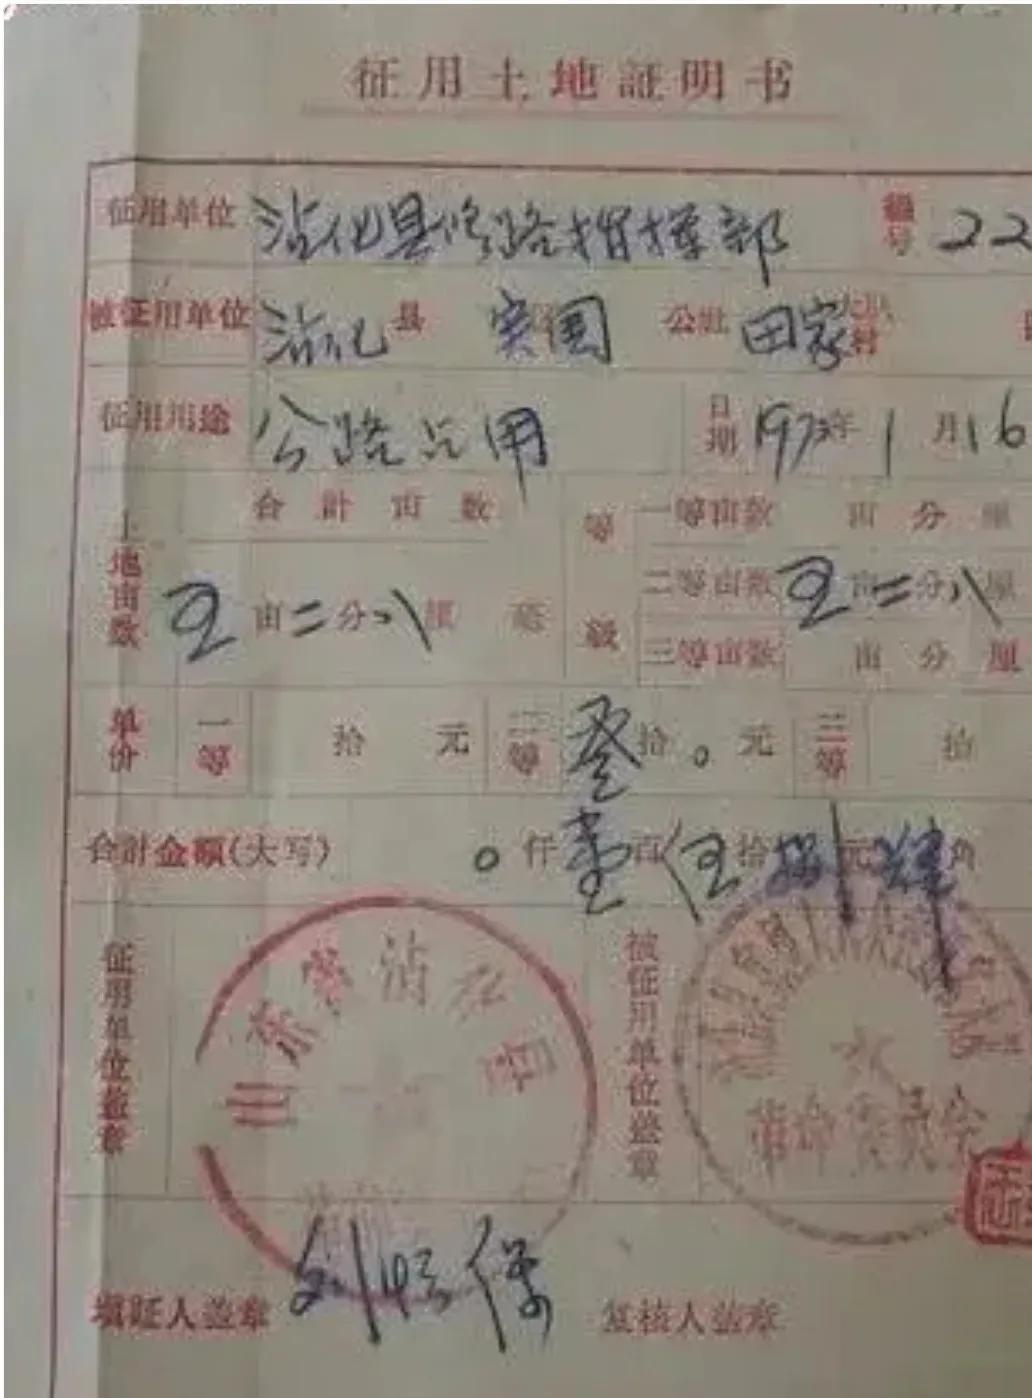 征用土地証明书
征用单位 沾化县修路指揮部 編号 22
被征用单位 沾化 县 国 公社 田家 大队村
征用用途 公路占用 日期 1973年1月16
土地亩数 合計亩数 等級 一等亩数 亩 分 厘
五亩二分八厘 二等亩数 五亩二分八厘
三等亩数 亩 分 厘
单价 一等 拾 元 二等 叁拾0元 三等 拾
合計金額(大写) 0仟壹百伍拾捌元肆角
征用单位盖章 被征用单位盖章
山东省沾化县
革命委员会
填証人盖章 刘 保 复核人盖章